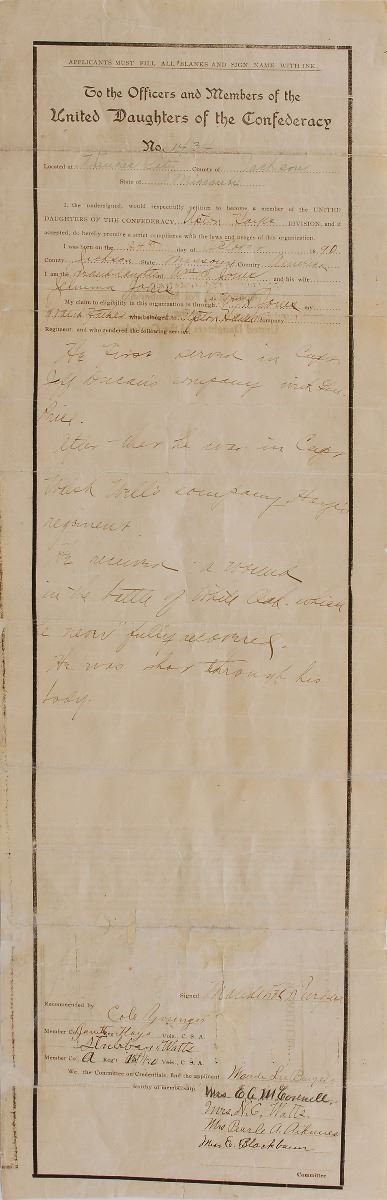 APPLICANTS MUST FILL ALL BLANKS AND SIGN NAME WITH INK.
To the Officers and Members of the
United Daughters of the Confederacy
No. 143
Located at County of Jackson
State of Missouri
I, the undersigned, would respectfully petition to become a member of the UNITED
DAUGHTERS OF THE CONFEDERACY, Upton Hays DIVISION, and if
accepted, do hereby promise a strict compliance with the laws and usages of this organization.
I was born on the 24th day of 1890
County Jackson State Missouri Country American
I am the granddaughter Wm S. Jones and his wife
Jemima Jones
My claim to eligibility in this organization is through Jones my
grand Father who belonged to Upton Hays Company
Regiment, and who rendered the following service:
He First served in Capt
company with Gen.
Price.
After that he was in Capt
company Hays
regiment
He received a wound
in the battle of White Oak. which
he never fully recovered.
He was shot through his
body.
Signed
Recommended by
Cole Younger
Member Co. Reg't Hays Vols., C. S. A.
Watts
Member Co. A Reg't Vols., C. S. A.
We, the Committee on Credentials, find the applicant
worthy of membership.
Mrs. E. A. McConnell.
Mrs. N. C. Watts.
Mrs Pearle A.
Mrs E. Blackburn
Committee